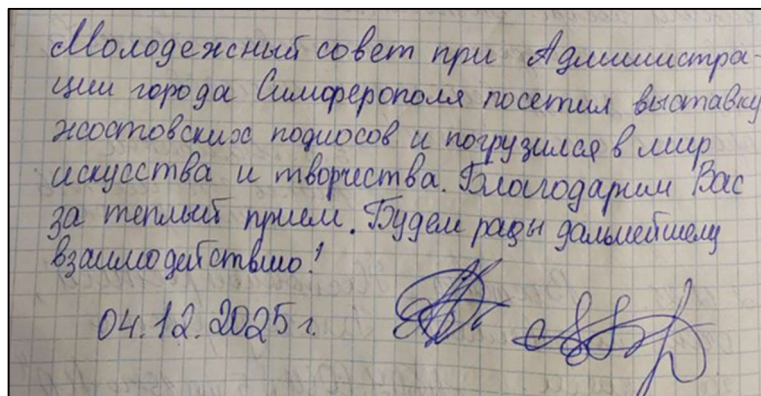 Молодежный совет при Администра-
ции города Симферополя посетил выставку
жостовских подносов и погрузился в мир
искусства и творчества. Благодарим Вас
за теплый прием. Будем рады дальнейшему
взаимодействию!
04.12.2025 г.